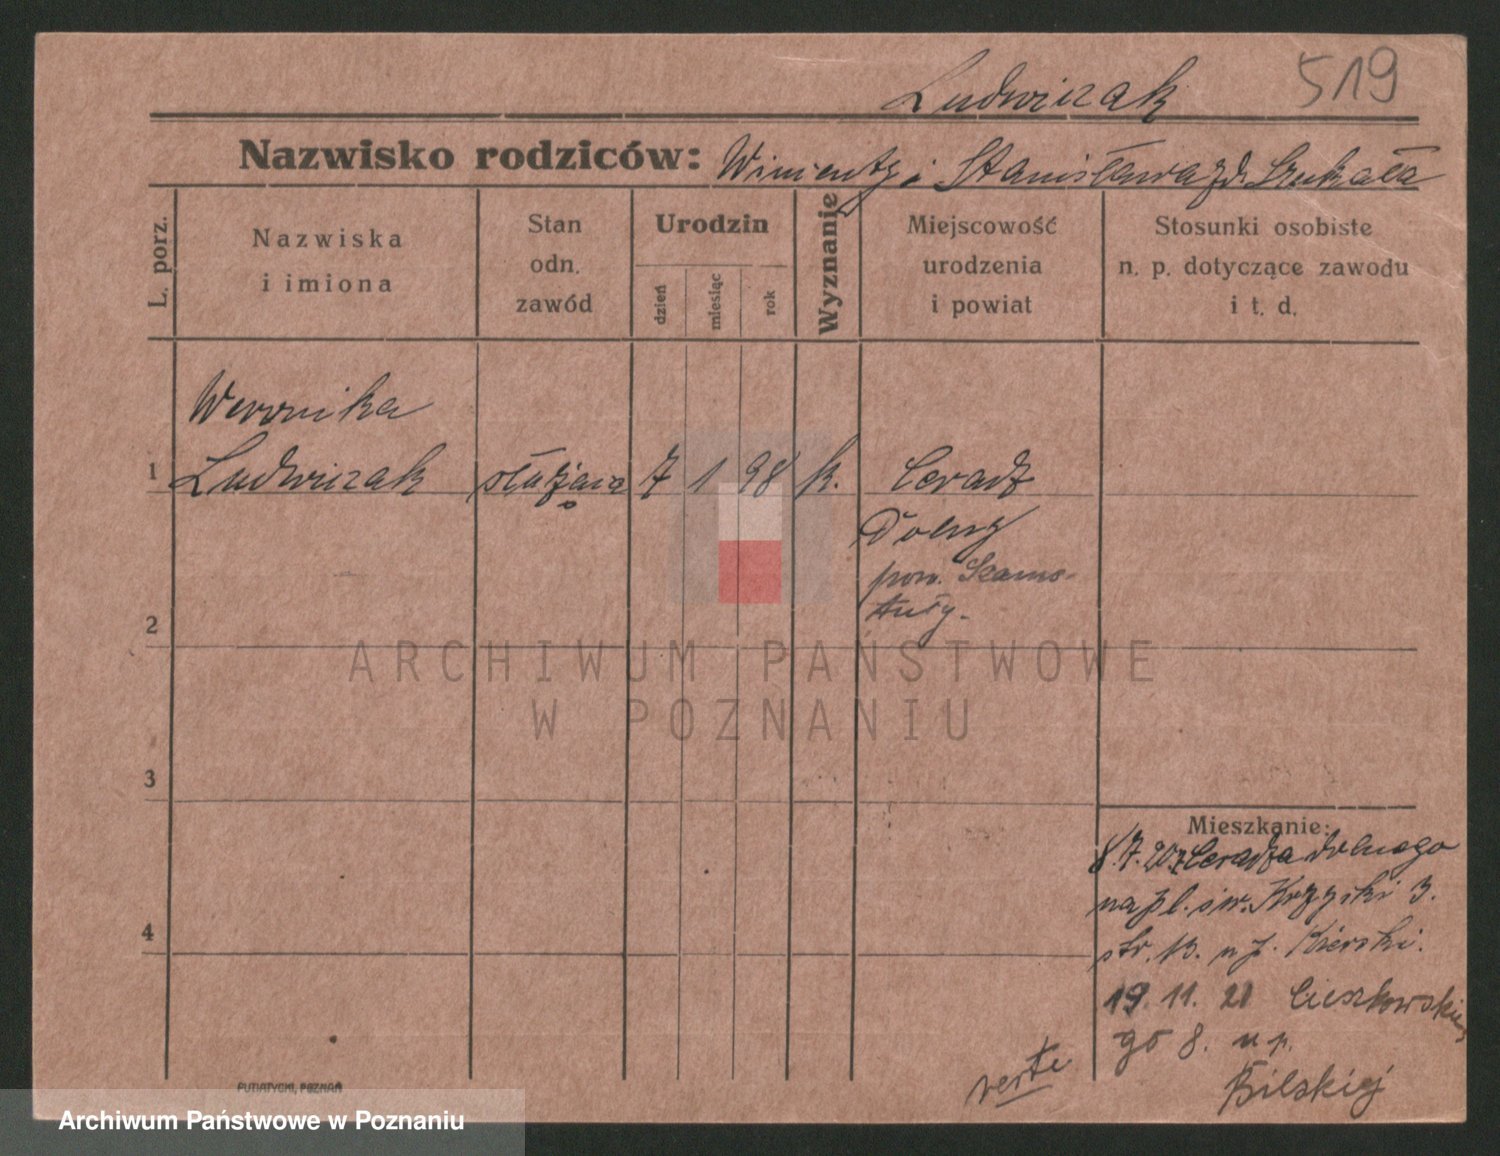 Ludwiczak 519
Nazwisko rodziców: Wincenty i Stanisława z d. Szukała
L. porz.
Nazwiska
i imiona
Stan
odn.
zawód
Urodzin
dzień
miesiąc
rok
Wyznanie
Miejscowość
urodzenia
i powiat
Stosunki osobiste
n. p. dotyczące zawodu
i t. d.
Weronika
1 Ludwiczak służąca 7 1 98 k. Ceradz
Dolny
pow. Szamo-
2 tuły.
ARCHIWUM PAŃSTWOWE
W POZNANIU
3
Mieszkanie:
8.7.20 z Ceradza dolnego
na pl. św. Krzyski 3.
4 str. B. u p. Bierski.
19.11.21 Cieszkowskie
go 8. u p.
Bilskiej
verte
PUTIATYCKI, POZNAŃ
Archiwum Państwowe w Poznaniu